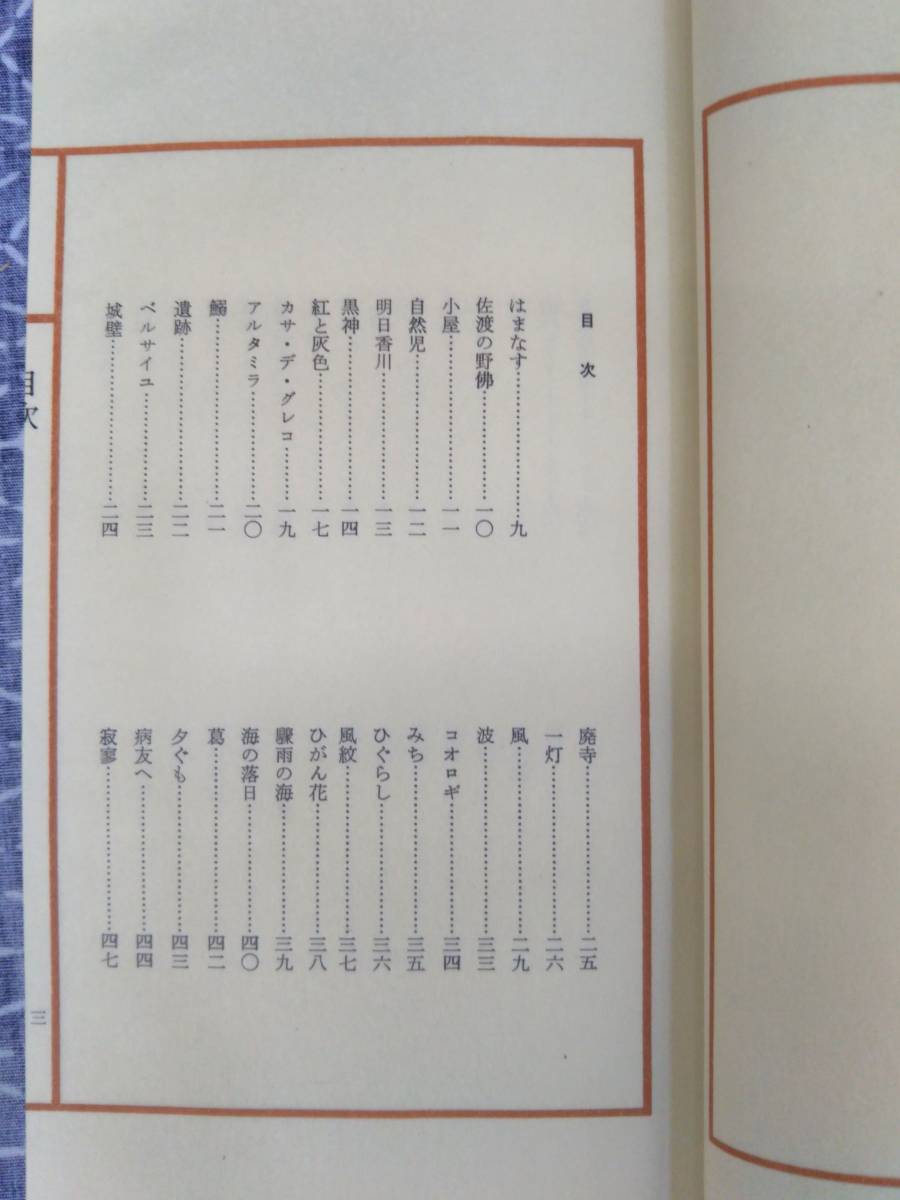 目次
はまなす……………………九
佐渡の野佛………………一〇
小屋……………………一一
自然児…………………一二
明日香川………………一三
黒神……………………一四
紅と灰色………………一七
カサ・デ・グレコ………一九
アルタミラ……………二〇
鰯………………………二一
遺跡……………………二二
ベルサイユ……………二三
城壁……………………二四
廃寺……………………二五
一灯……………………二六
風………………………二九
波………………………三三
コオロギ………………三四
みち……………………三五
ひぐらし………………三六
風紋……………………三七
ひがん花………………三八
驟雨の海………………三九
海の落日………………四〇
葛………………………四二
夕ぐも…………………四三
病友へ…………………四四
寂寥……………………四七
目次
三